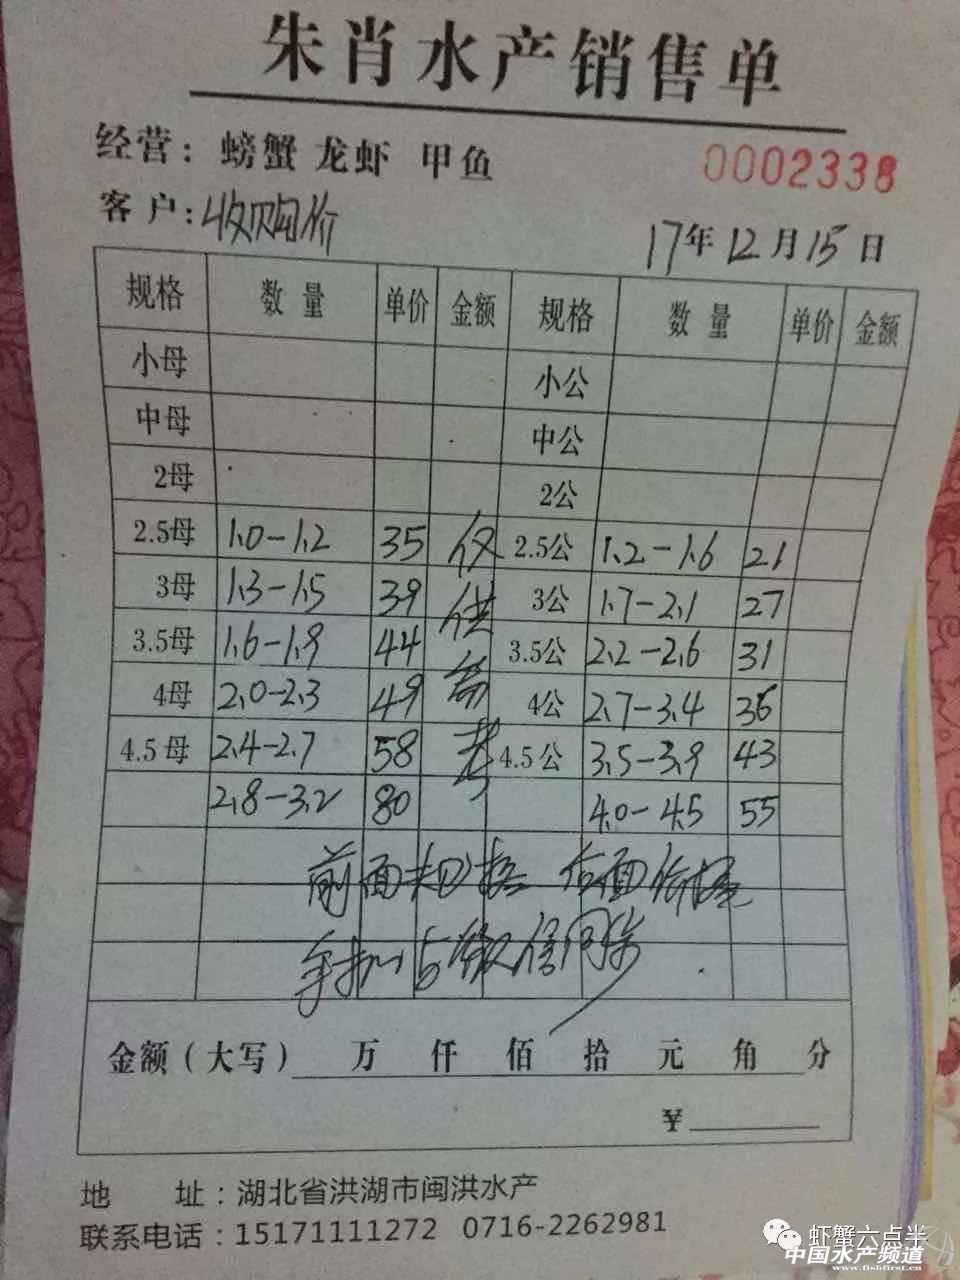 朱肖水产销售单
经营：螃蟹 龙虾 甲鱼 0002338
客户：收购价 17年12月15日
规格 数量 单价 金额 规格 数量 单价 金额
小母 小公
中母 中公
2母 2公
2.5母 1.0-1.2 35 仅 2.5公 1.2-1.6 21
3母 1.3-1.5 39 供 3公 1.7-2.1 27
3.5母 1.6-1.9 44 参 3.5公 2.2-2.6 31
4母 2.0-2.3 49 考 4公 2.7-3.4 36
4.5母 2.4-2.7 58 4.5公 3.5-3.9 43
2.8-3.2 80 4.0-4.5 55
前面规格 后面价格
手机与微信同步
金额（大写） 万 仟 佰 拾 元 角 分
¥
地 址：湖北省洪湖市闽洪水产
联系电话：15171111272 0716-2262981
虾蟹六点半
中国水产频道
www.fishfirst.cn